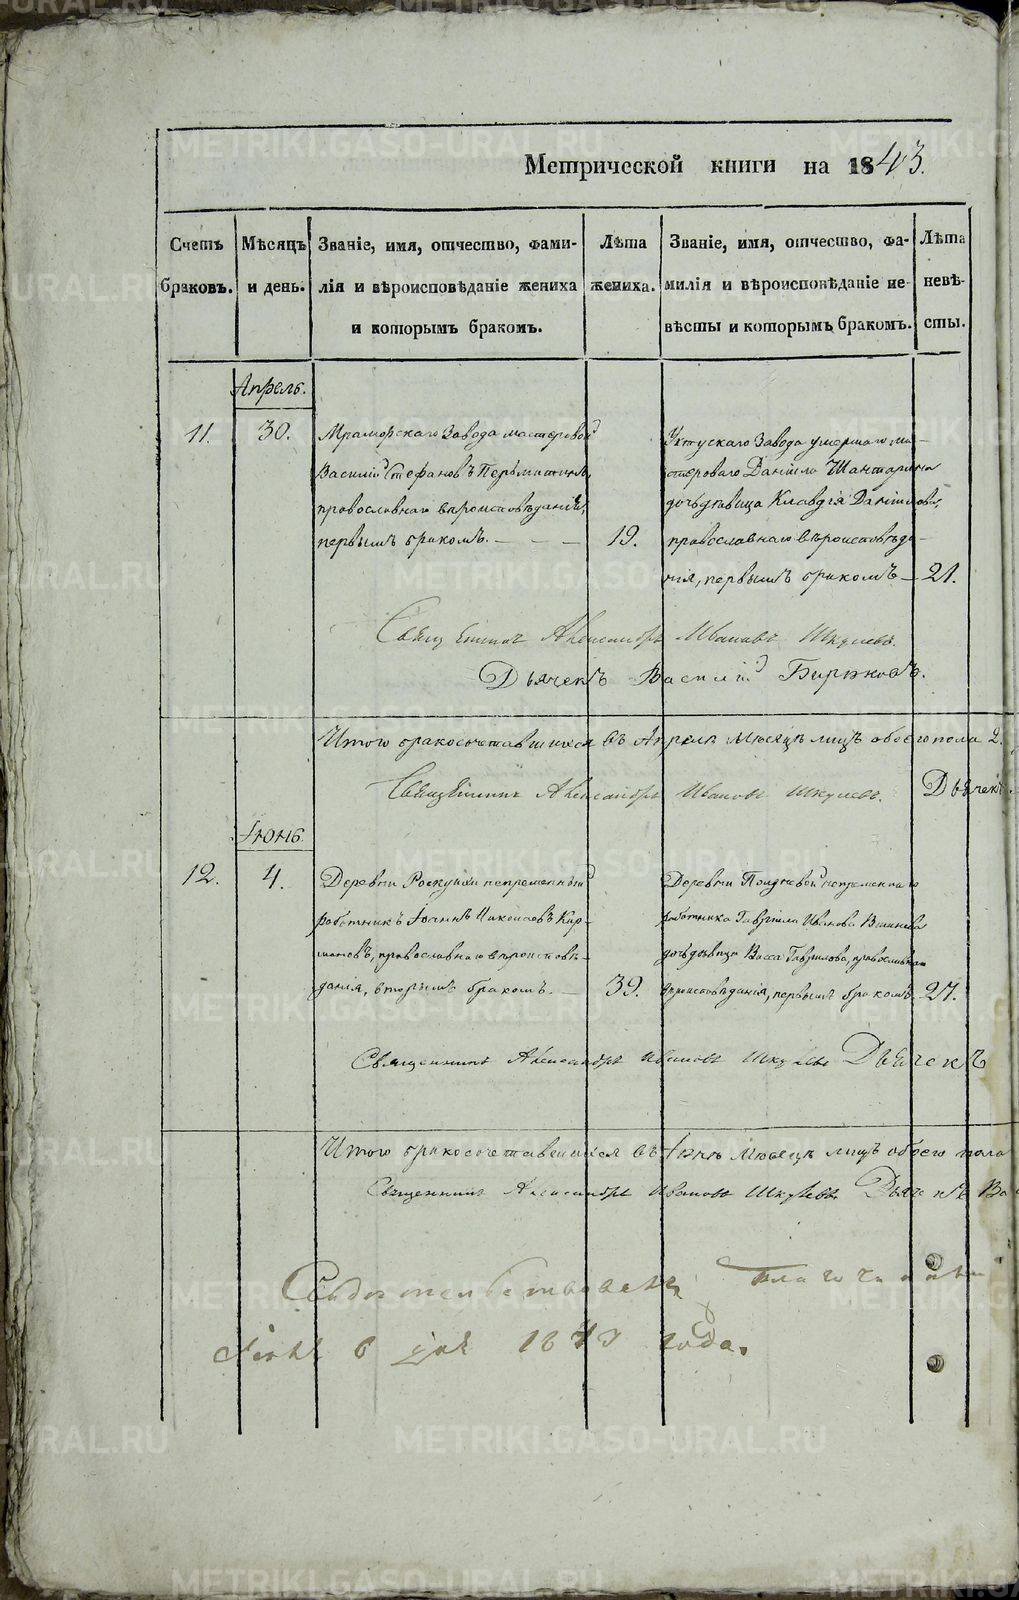 Метрической книги на 1843.
Счетъ браковъ.
Мѣсяцъ и день.
Званіе, имя, отчество, фами-
лія и вѣроисповѣданіе жениха
и которымъ бракомъ.
Лѣта жениха.
Званіе, имя, отчество, фа-
милія и вѣроисповѣданіе не-
вѣсты и которымъ бракомъ.
Лѣта невѣ-
сты.
Апрель.
11.
30.
Мраморскаго Завода мастеровой
Василій Стефановъ
православнаго вѣроисповѣданія,
первымъ бракомъ.
19.
Уктускаго Завода умершаго ма-
стероваго Даніила
дочь девица Клавдія Даніилова,
православнаго вѣроисповѣда-
нія, первымъ бракомъ
21.
Священникъ Александръ Ивановъ Шкулевъ.
Дьячекъ Василій Бирюковъ.
Итого бракосочетавшихся въ Апреле Месяце лицъ обоего пола 2.
Священникъ Александръ Ивановъ Шкулевъ. Дьячекъ
Іюнь.
12.
4.
Деревни непременный
работникъ Іоаннъ
православнаго вѣроисповѣ-
данія, вторымъ бракомъ.
39.
Деревни Полдневой непременнаго
работника Гавріила Иванова
дочь девица Васса Гаврилова, православнаго
вѣроисповѣданія, первымъ бракомъ
27.
Священникъ Александръ Ивановъ Шкулевъ Дьячекъ
Итого бракосочетавшихся въ Іюне Месяце лицъ обоего пола
Священникъ Александръ Ивановъ Шкулевъ Дьячекъ
1843 года.
METRIKI.GASO-URAL.RU